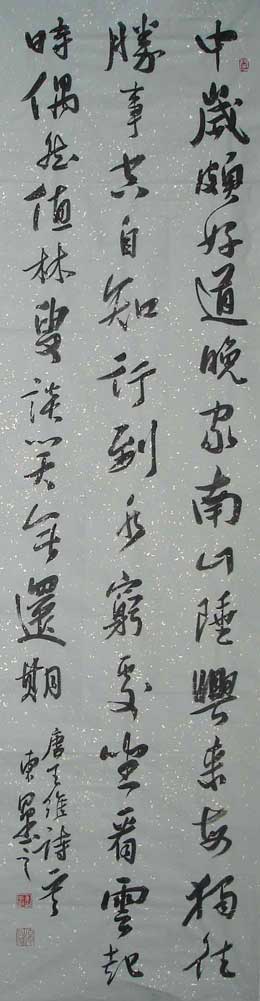 中歲頗好道晚家南山陲興來每獨往
勝事空自知行到水窮處坐看雲起
時偶然值林叟談笑無還期
唐王維詩意
東